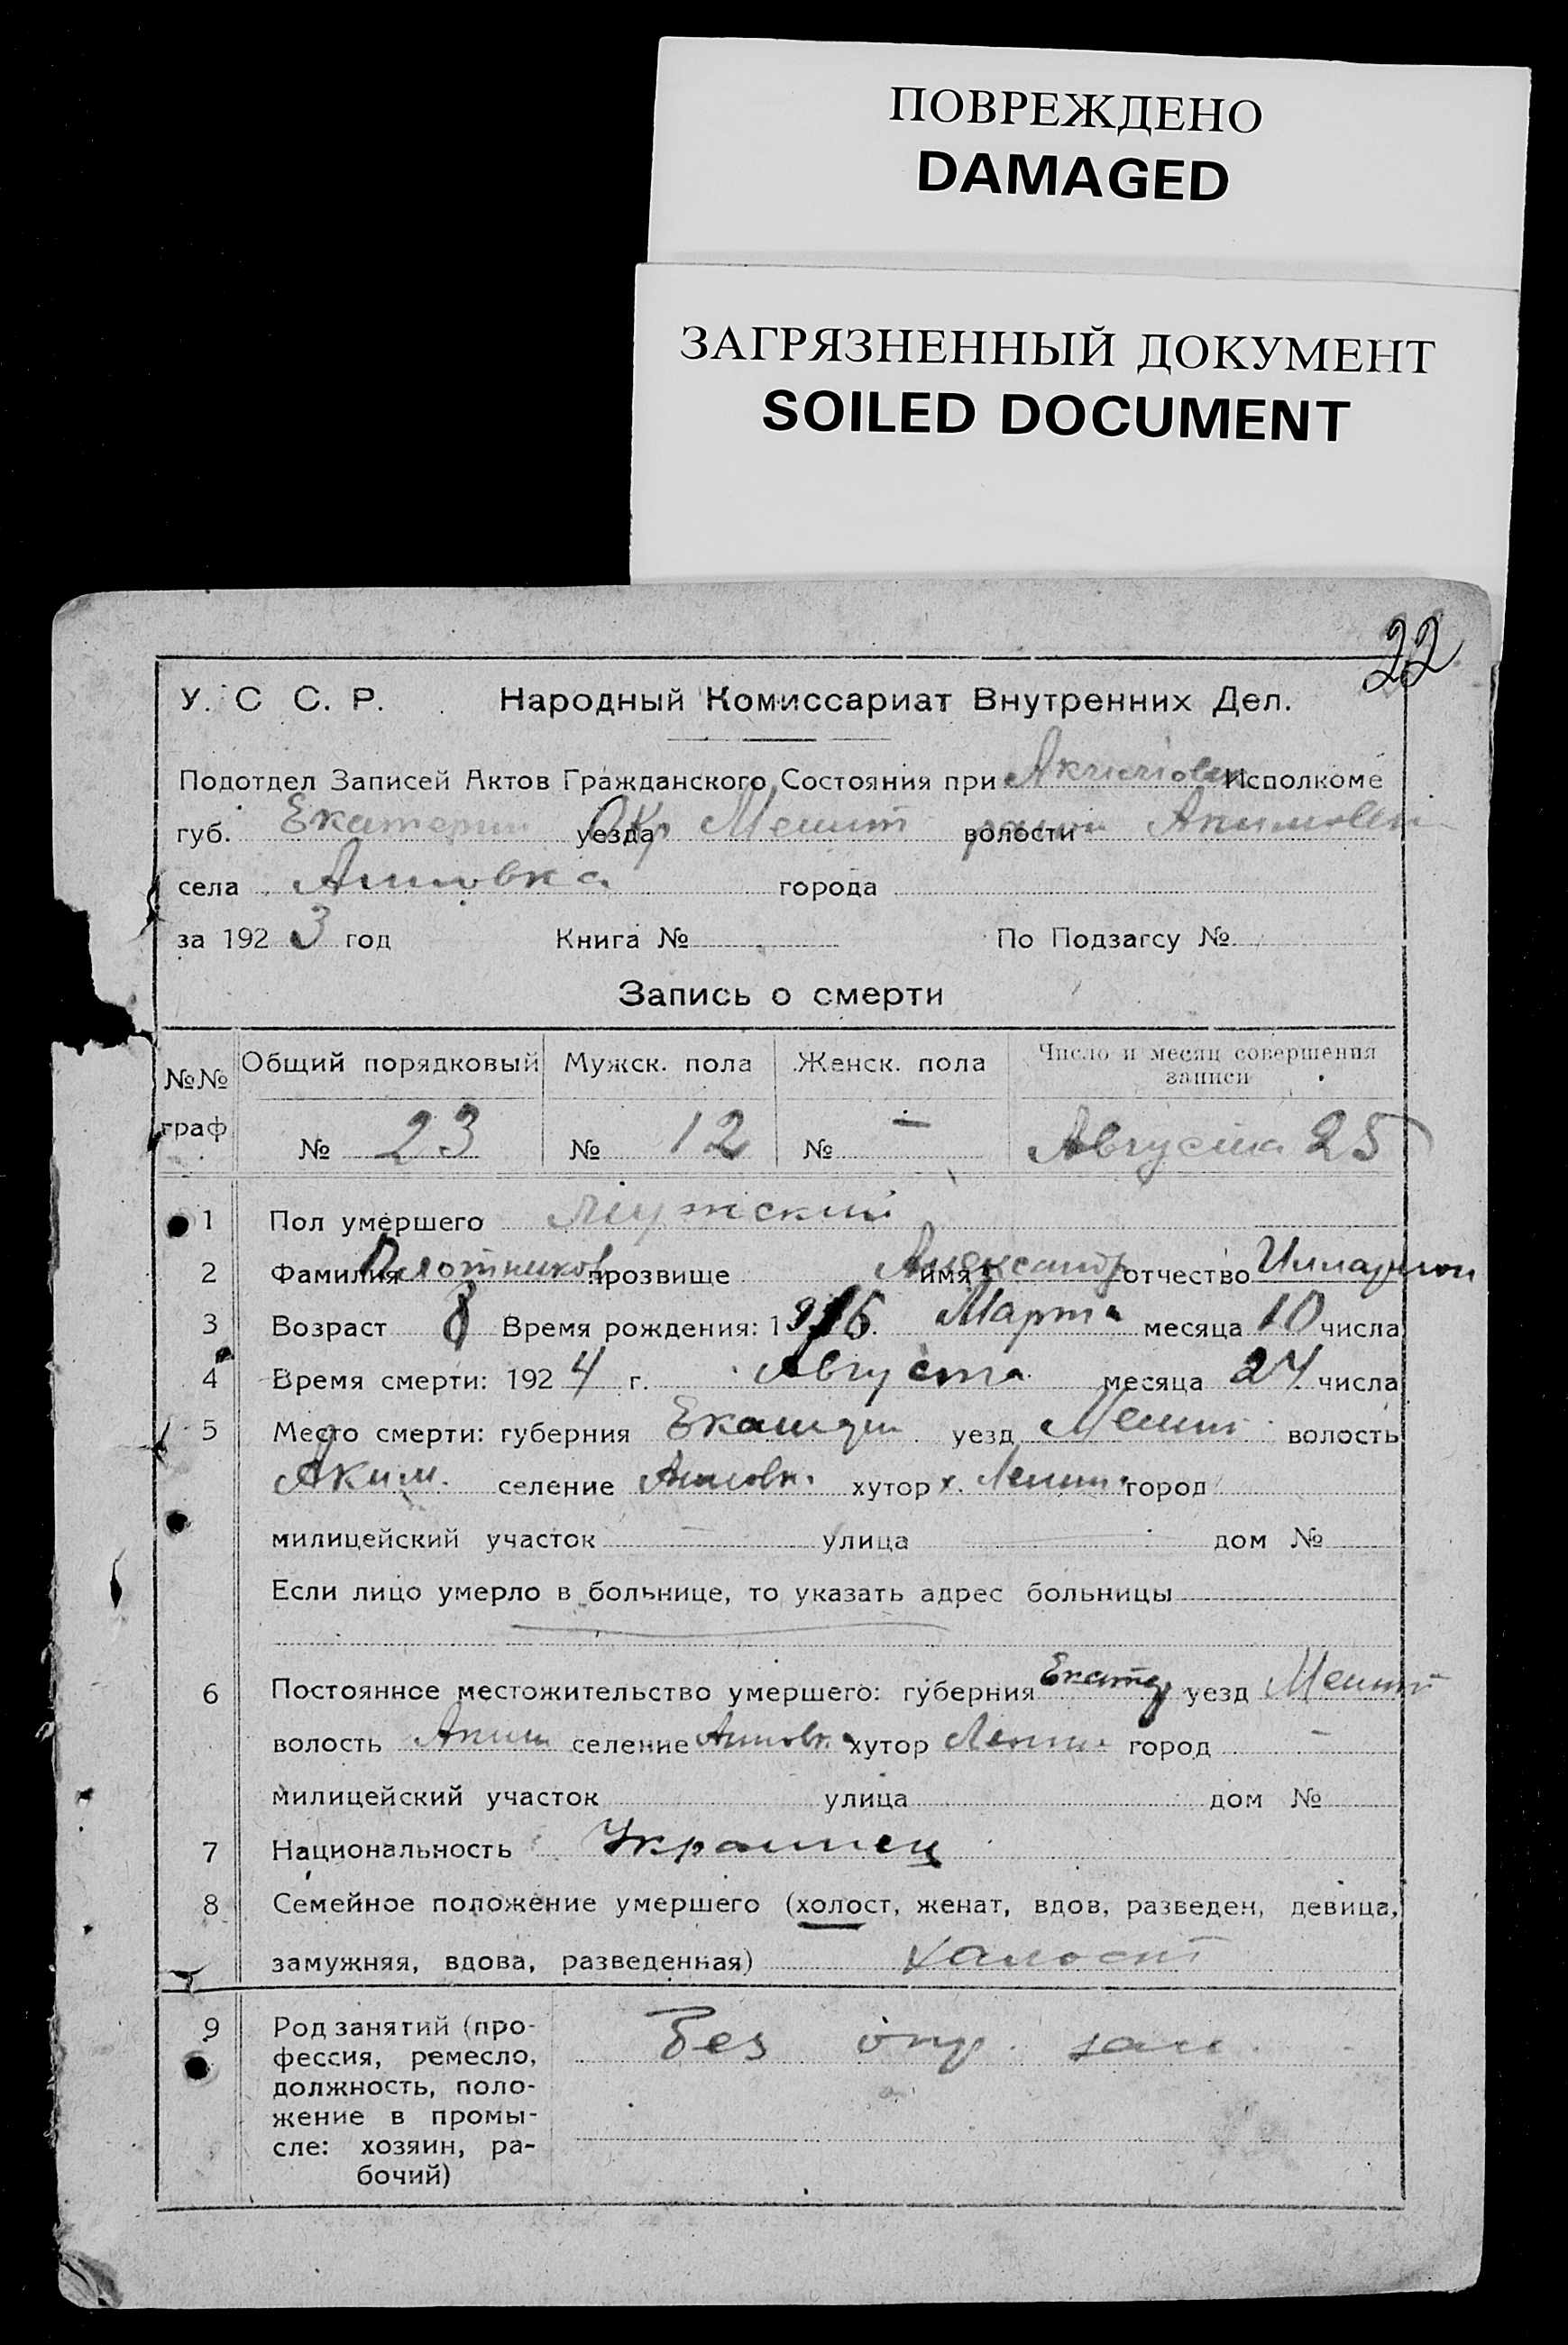 ПОВРЕЖДЕНО
DAMAGED
ЗАГРЯЗНЕННЫЙ ДОКУМЕНТ
SOILED DOCUMENT
22
У. С С. Р. Народный Комиссариат Внутренних Дел.
Подотдел Записей Актов Гражданского Состояния при Исполкоме
губ. Екатерин уезда Окр Мелит волости район Акимовск
села города
за 1923 год Книга № По Подзагсу №
Запись о смерти
№№ граф Общий порядковый Мужск. пола Женск. пола Число и месяц совершения записи
№ 23 № 12 № — Августа 25
1 Пол умершего мужский
2 Фамилия Плотников прозвище имя Александр отчество Иларион
3 Возраст 8 Время рождения: 1916 Марта месяца 10 числа
4 Время смерти: 1924 г. Августа месяца 24 числа
5 Место смерти: губерния уезд Мелит волость
Аким. селение хутор город
милицейский участок — улица — дом №
Если лицо умерло в больнице, то указать адрес больницы
6 Постоянное местожительство умершего: губерния Екатер уезд Мелит
волость Аким селение хутор город —
милицейский участок улица дом №
7 Национальность Украинец
8 Семейное положение умершего (холост, женат, вдов, разведен, девица,
замужняя, вдова, разведенная) халост
9 Род занятий (про-
фессия, ремесло,
должность, поло-
жение в промы-
сле: хозяин, ра-
бочий)
Без опр. зан.